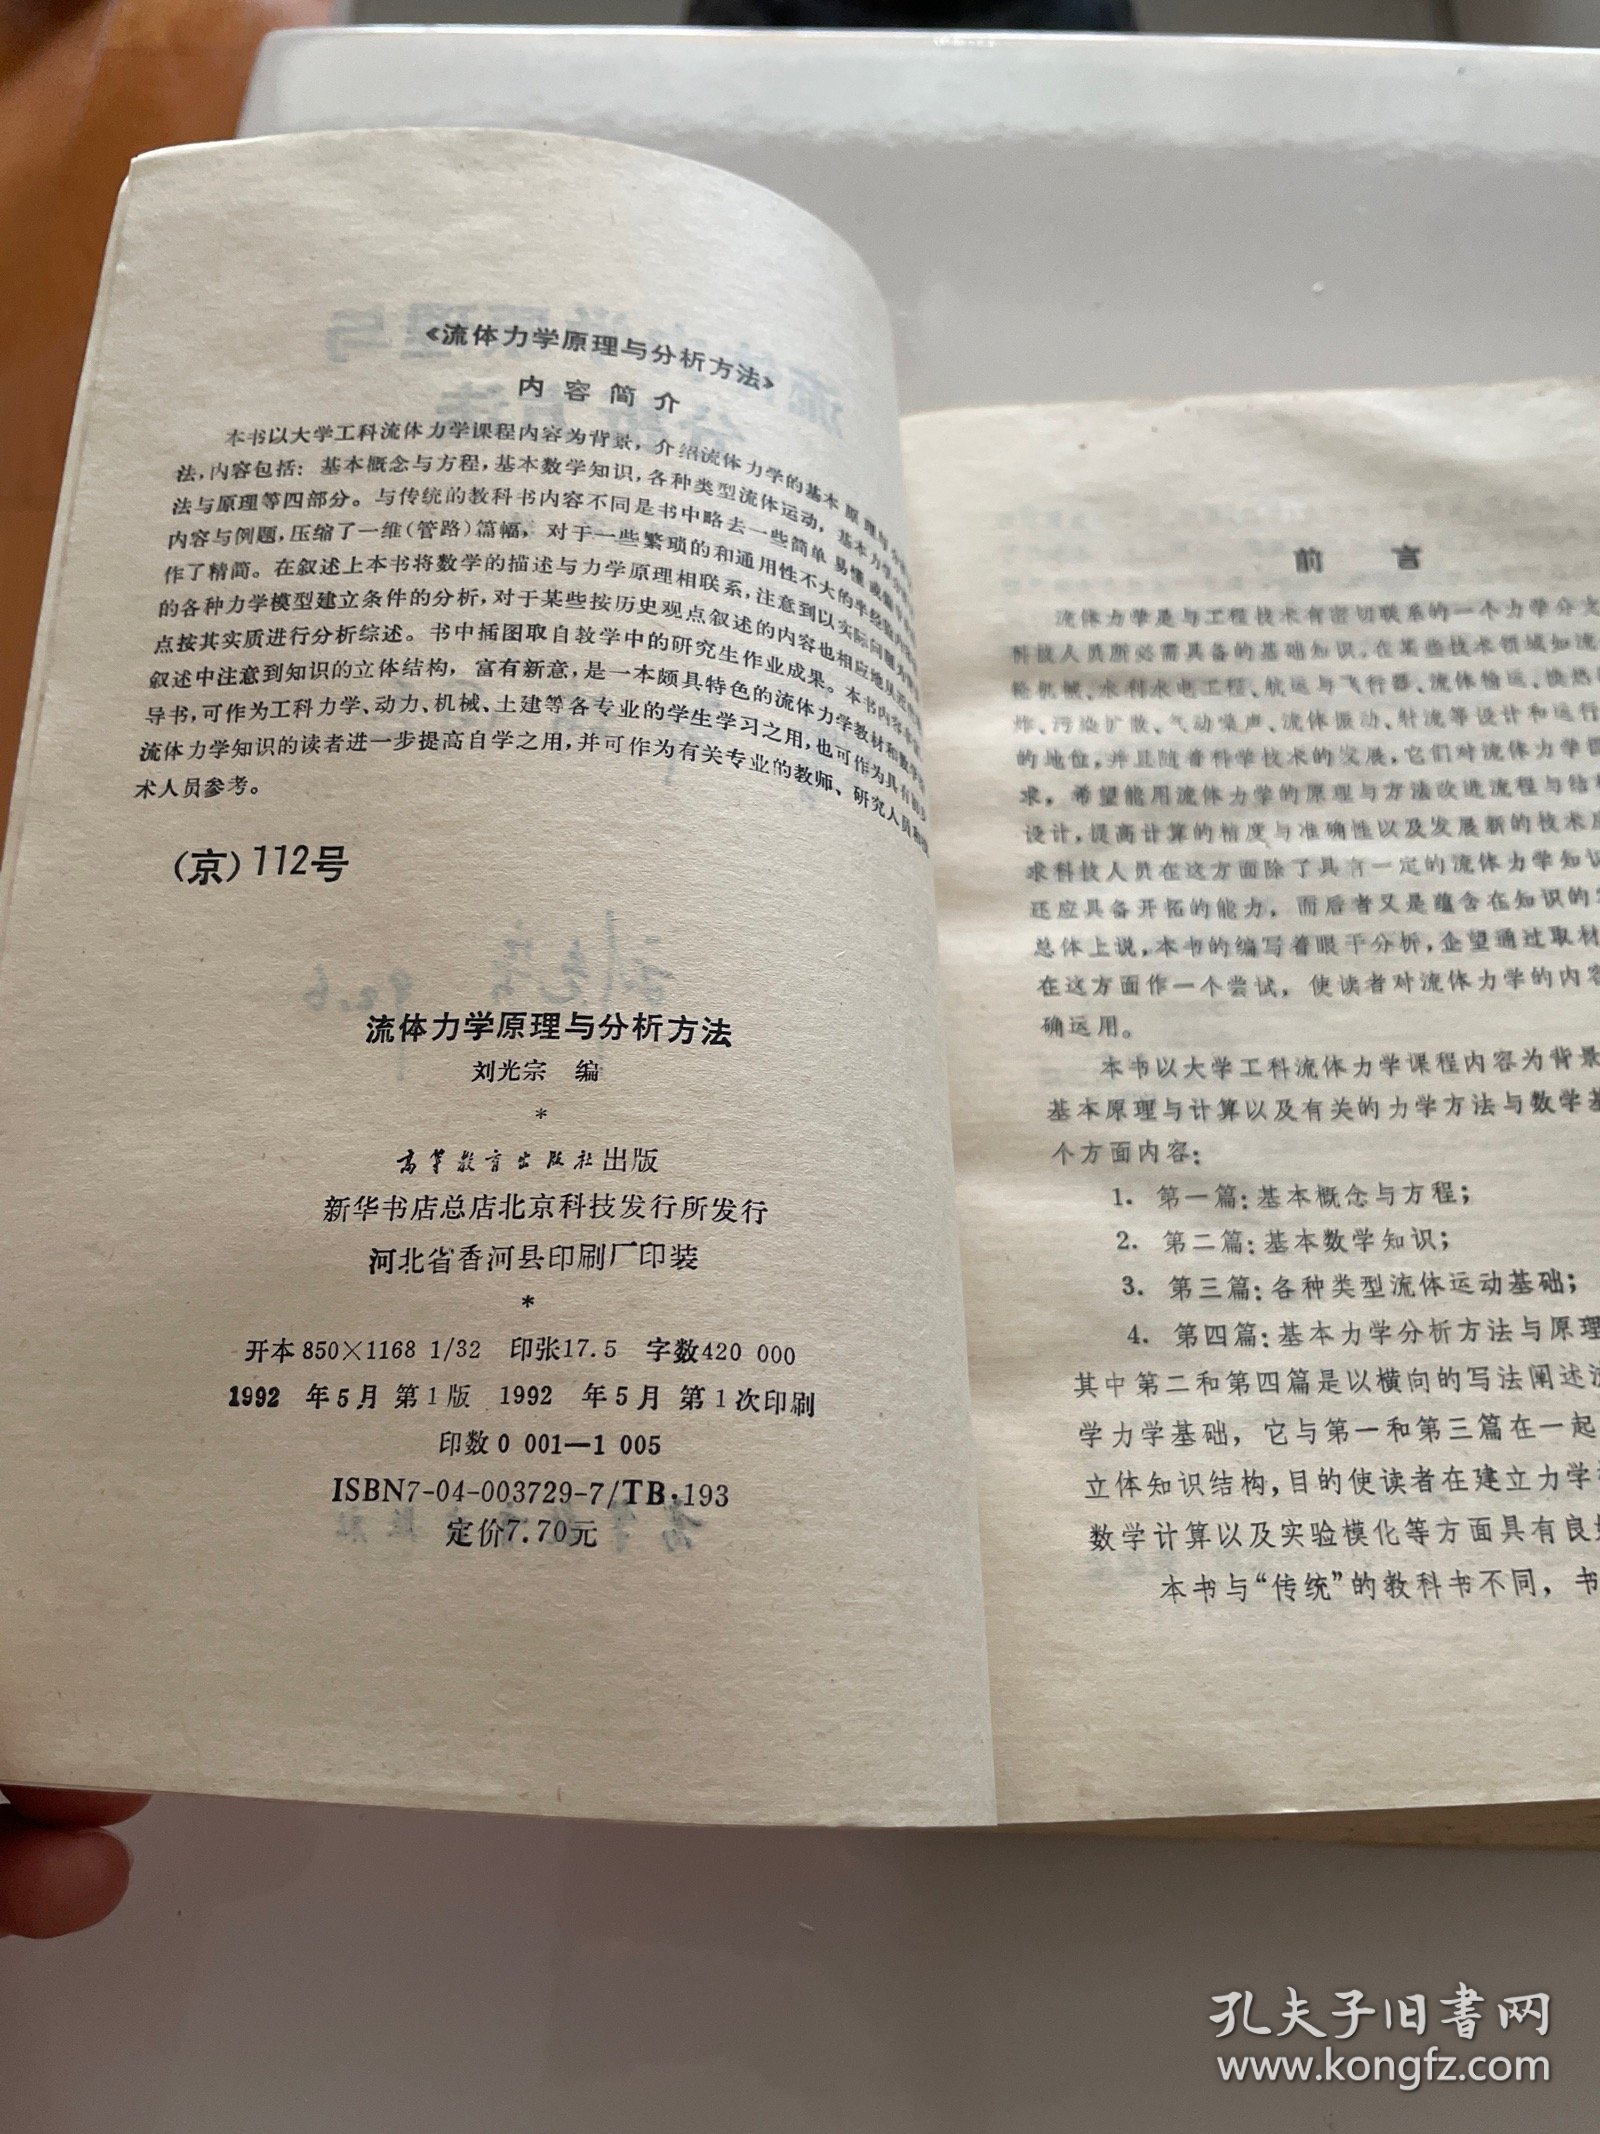 《流体力学原理与分析方法》
内容简介
本书以大学工科流体力学课程内容为背景，介绍流体力学的基本原理与
法，内容包括：基本概念与方程，基本数学知识，各种类型流体运动，基本力学
法与原理等四部分。与传统的教科书内容不同是书中略去一些简单易懂或
内容与例题，压缩了一维（管路）篇幅，对于一些繁琐的和通用性不大的半经验
作了精简。在叙述上本书将数学的描述与力学原理相联系，注意到以实际问题为
的各种力学模型建立条件的分析，对于某些按历史观点叙述的内容也相应地从
点按其实质进行分析综述。书中插图取自教学中的研究生作业成果。本书内容
叙述中注意到知识的立体结构，富有新意，是一本颇具特色的流体力学教材和教学
导书，可作为工科力学、动力、机械、土建等各专业的学生学习之用，也可作为具有
流体力学知识的读者进一步提高自学之用，并可作为有关专业的教师、研究人员
术人员参考。
（京）112号
流体力学原理与分析方法
刘光宗 编
*
高等教育出版社出版
新华书店总店北京科技发行所发行
河北省香河县印刷厂印装
*
开本850×1168 1/32 印张17.5 字数420 000
1992 年5月 第1版 1992 年5月 第1次印刷
印数0 001—1 005
ISBN7-04-003729-7/TB·193
定价7.70元
前 言
流体力学是与工程技术有密切联系的一个力学分支
科技人员所必需具备的基础知识，在某些技术领域如流
轮机械、水利水电工程、航运与飞行器、流体输运、换热
炸、污染扩散、气动噪声、流体振动、射流等设计和运行
的地位，并且随着科学技术的发展，它们对流体力学
求，希望能用流体力学的原理与方法改进流程与结构
设计，提高计算的精度与准确性以及发展新的技术应
求科技人员在这方面除了具有一定的流体力学知识
还应具备开拓的能力，而后者又是蕴含在知识的
总体上说，本书的编写着眼于分析，企望通过取材
在这方面作一个尝试，使读者对流体力学的内容
确运用。
本书以大学工科流体力学课程内容为背景
基本原理与计算以及有关的力学方法与数学基
个方面内容：
1. 第一篇：基本概念与方程；
2. 第二篇：基本数学知识；
3. 第三篇：各种类型流体运动基础；
4. 第四篇：基本力学分析方法与原理
其中第二和第四篇是以横向的写法阐述流
学力学基础，它与第一和第三篇在一起
立体知识结构，目的使读者在建立力学
数学计算以及实验模化等方面具有良好
本书与“传统”的教科书不同，书
孔夫子旧书网
www.kongfz.com